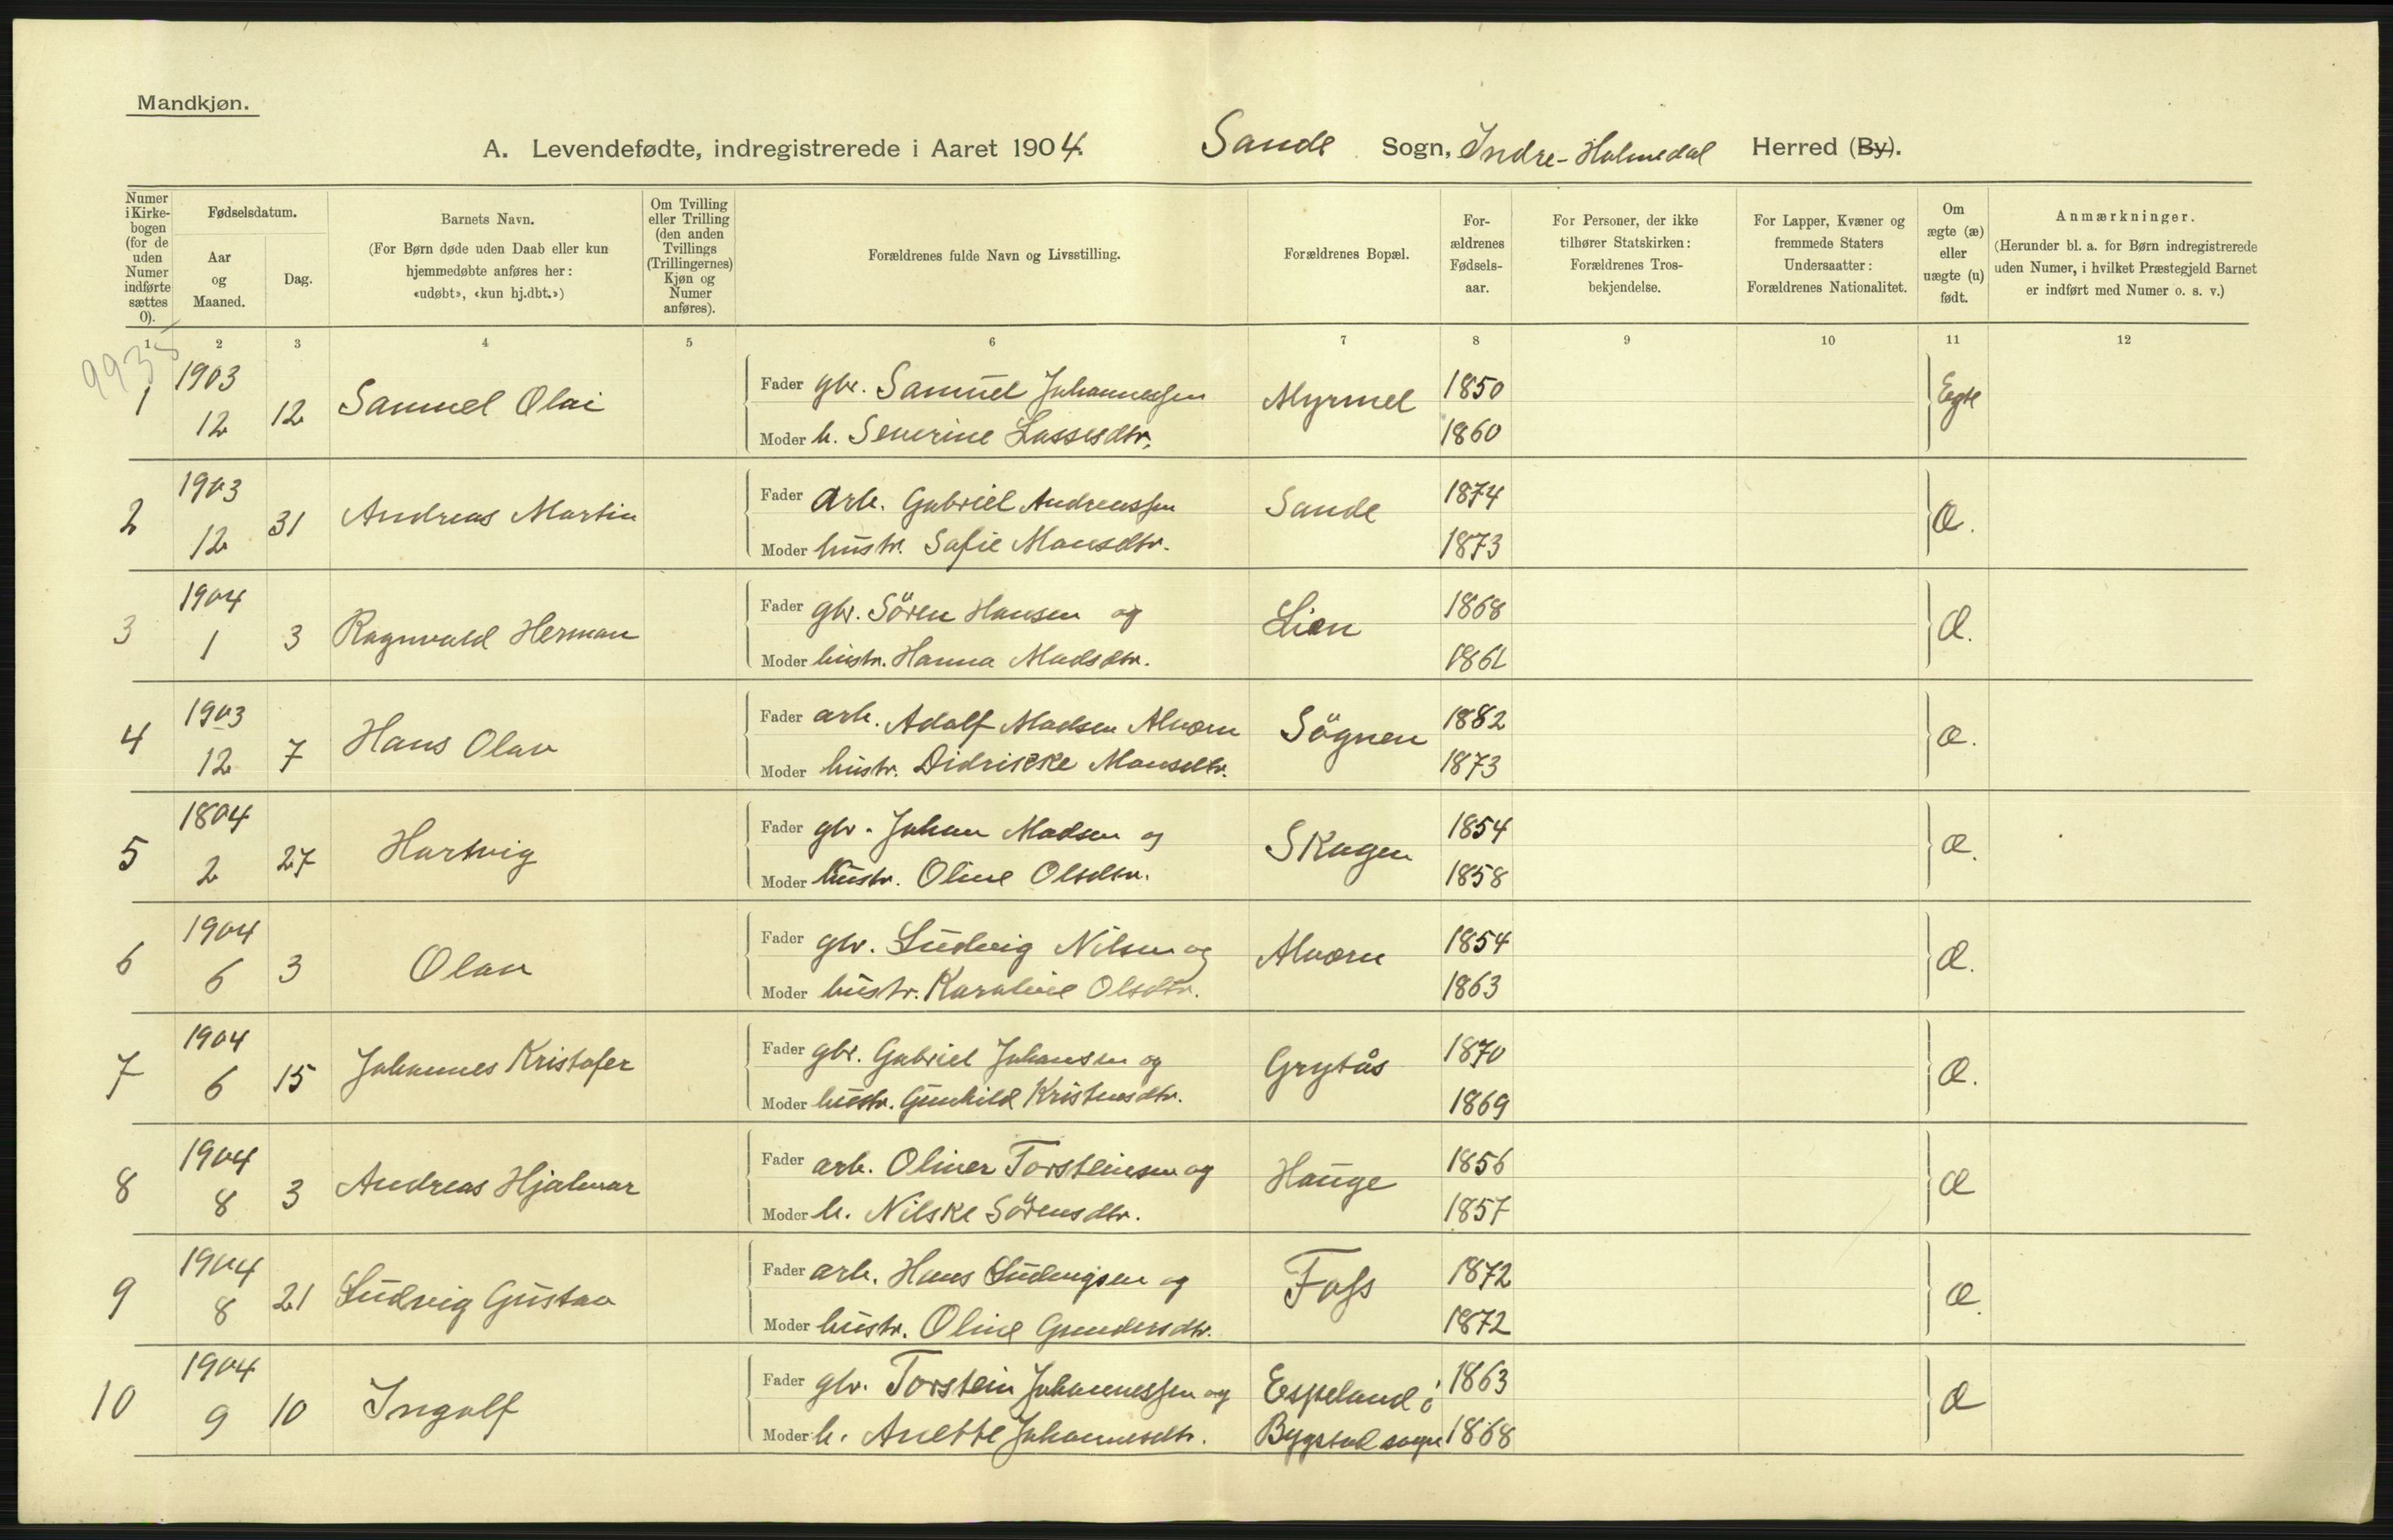 Mandkjøn.
A. Levendefødte, indregistrerede i Aaret 1904. Sande Sogn, Indre-Holmedal Herred (By).
Numer i Kirke-bogen (for de uden Numer indførte sættes 0).
Fødselsdatum.
Aar og Maaned.
Dag.
Barnets Navn.
(For Børn døde uden Daab eller kun hjemmedøbte anføres her: «udøbt», «kun hj.dbt.»)
Om Tvilling eller Trilling (den anden Tvillings (Trillingernes) Kjøn og Numer anføres).
Forældrenes fulde Navn og Livsstilling.
Forældrenes Bopæl.
For-ældrenes Fødsels-aar.
For Personer, der ikke tilhører Statskirken: Forældrenes Tros-bekjendelse.
For Lapper, Kvæner og fremmede Staters Undersaatter: Forældrenes Nationalitet.
Om ægte (æ) eller uægte (u) født.
Anmærkninger.
(Herunder bl. a. for Børn indregistrerede uden Numer, i hvilket Præstegjeld Barnet er indført med Numer o. s. v.)
1 2 3 4 5 6 7 8 9 10 11 12
9935
1 1903 12 12 Samuel Olai Fader gbr. Samuel Johannessen Myrmel 1850 Egte
Moder h. Severine Lassesdtr. 1860
2 1903 12 31 Andreas Martin Fader arb. Gabriel Andreassen Sande 1874 Æ.
Moder hustr. Safie Monsdtr. 1873
3 1904 1 3 Ragnvald Herman Fader gbr. Sören Hansen og Lien 1868 Æ.
Moder hustr. Hanna Madsdtr. 1861
4 1903 12 7 Hans Olav Fader arb. Adolf Madsen Alværn Sögnen 1882 æ.
Moder hustr. Didrikke Monsdtr. 1873
5 1804 2 27 Hartvig Fader gbr. Johan Madsen og Skagen 1854 æ.
Moder hustr. Oline Olsdtr. 1858
6 1904 6 3 Olav Fader gbr. Ludvig Nilsen og Alværn 1854 Æ.
Moder hustr. Karoline Olsdtr. 1863
7 1904 6 15 Johannes Kristofer Fader gbr. Gabriel Johansen og Grytås 1870 Æ.
Moder hustr. Gunhild Kristensdtr. 1869
8 1904 8 3 Andreas Hjalmar Fader arb. Oliver Torsteinsen og Hauge 1856 Æ
Moder h. Nilske Sörensdtr. 1857
9 1904 8 21 Ludvig Gustav Fader arb. Hans Ludvigsen og Foss 1872 æ.
Moder hustr. Oline Gundersdtr. 1872
10 1904 9 10 Ingolf Fader gbr. Torstein Johannessen og Espeland i 1863 Æ
Moder h. Anette Johannesdtr. Bygstad sogn 1868